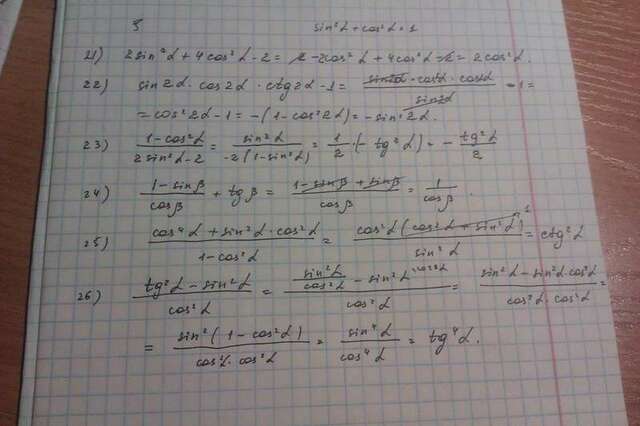 sin²α + cos²α = 1
21) 2sin²α + 4cos²α - 2 = 2 - 2cos²α + 4cos²α - 2 = 2cos²α.
22) sin2α · cos2α · ctg2α - 1 = (sin2α · cos2α · cos2α)/(sin2α) - 1 =
= cos²2α - 1 = -(1 - cos²2α) = -sin²2α.
23) (1 - cos²α)/(2sin²α - 2) = (sin²α)/(-2(1 - sin²α)) = 1/2 · (-tg²α) = - (tg²α)/2
24) (1 - sinβ)/(cosβ) + tgβ = (1 - sinβ + sinβ)/(cosβ) = 1/(cosβ).
25) (cos⁴α + sin²α · cos²α)/(1 - cos²α) = (cos²α(cos²α + sin²α)¹)/(sin²α) = ctg²α
26) (tg²α - sin²α)/(cos²α) = ((sin²α)/(cos²α) - sin²α \cos²α)/(cos²α) = (sin²α - sin²α · cos²α)/(cos²α · cos²α) =
= (sin²(1 - cos²α))/(cos²α · cos²α) = (sin⁴α)/(cos⁴α) = tg⁴α.